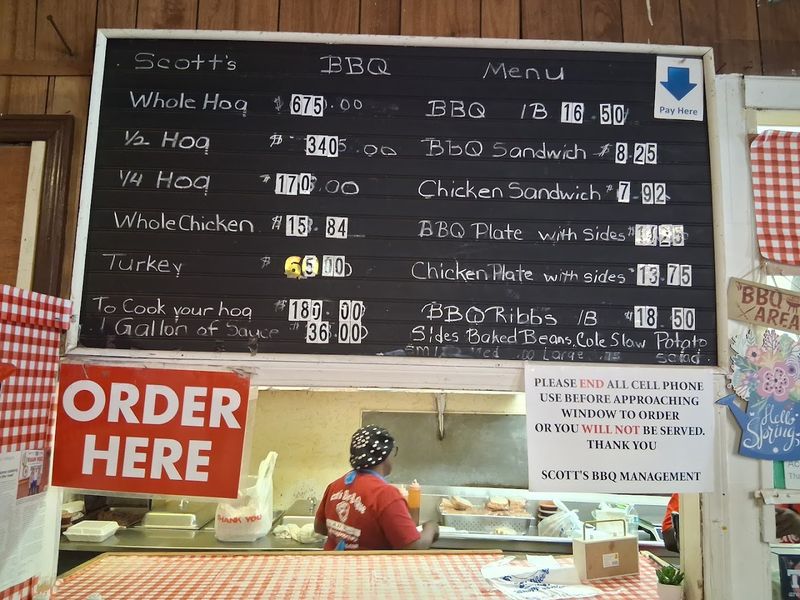 Scott's BBQ Menu
Pay Here
Whole Hog $ 675.00
1/2 Hog $ 340 .00
1/4 Hog $ 170 .00
Whole Chicken $ 15 84
Turkey $ 65 00
To Cook your hog $ 180 00
1 Gallon of Sauce 36 00
BBQ lB 16 50
BBQ Sandwich $ 8.25
Chicken Sandwich $ 7 92
BBQ Plate with sides $
Chicken Plate with sides $ 13 75
BBQ Ribbs lB $ 18 50
Sides Baked Beans, Cole Slaw Potato
Salad
ORDER
HERE
PLEASE END ALL CELL PHONE
USE BEFORE APPROACHING
WINDOW TO ORDER
OR YOU WILL NOT BE SERVED.
THANK YOU
SCOTT'S BBQ MANAGEMENT
"BBQ"
AREA
Hello
Spring
THANK YOU